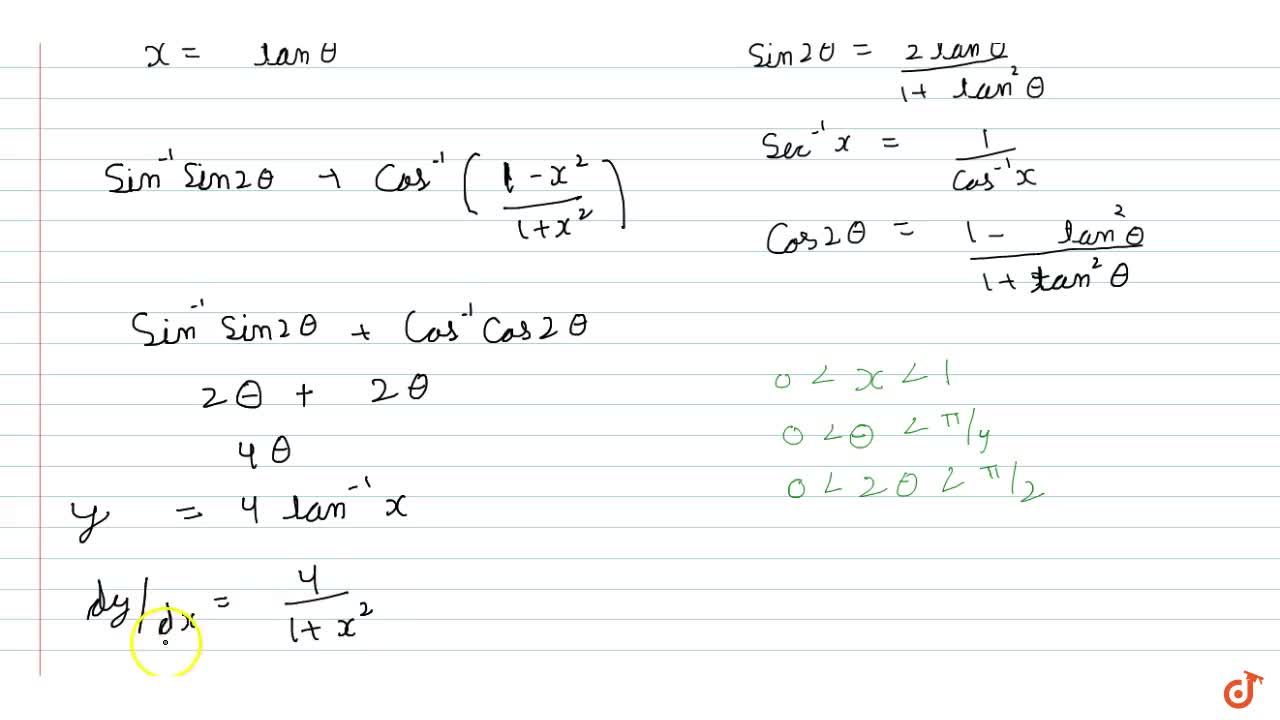 x = tanθ
Sin⁻¹ Sin2θ + Cos⁻¹ ( (1 - x²) / (1 + x²) )
Sin⁻¹ Sin2θ + Cos⁻¹ Cos2θ
2θ + 2θ
4θ
y = 4 tan⁻¹ x
dy/dx = 4 / (1 + x²)
Sin2θ = 2 tanθ / (1 + tan²θ)
Sec⁻¹ x = 1 / Cos⁻¹ x
Cos2θ = (1 - tan²θ) / (1 + tan²θ)
0 < x < 1
0 < θ < π/4
0 < 2θ < π/2